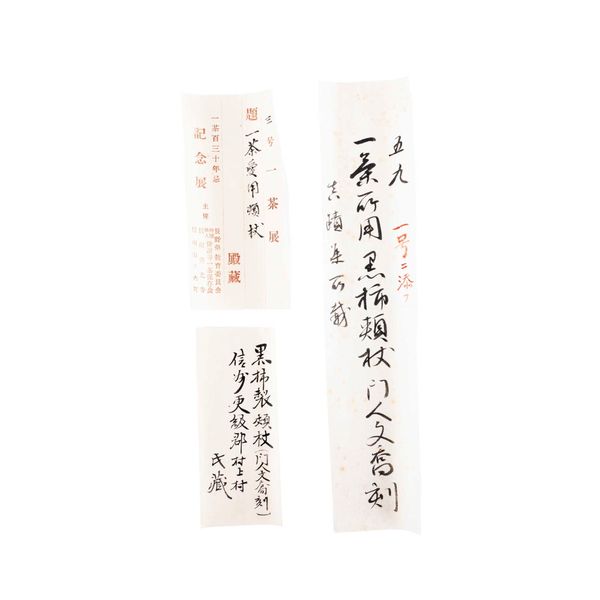 五九
一号ニ添フ
一茶所用黒柿頬杖門人文喬刻
真蹟集所載
三号 一茶展
題 一茶愛用頬杖
殿蔵
一茶百三十年忌
記念展
主催
長野県教育委員会
俳諧寺一茶保存会
黒柿製頬杖(門人文喬刻)
信州更級郡村上村
氏蔵